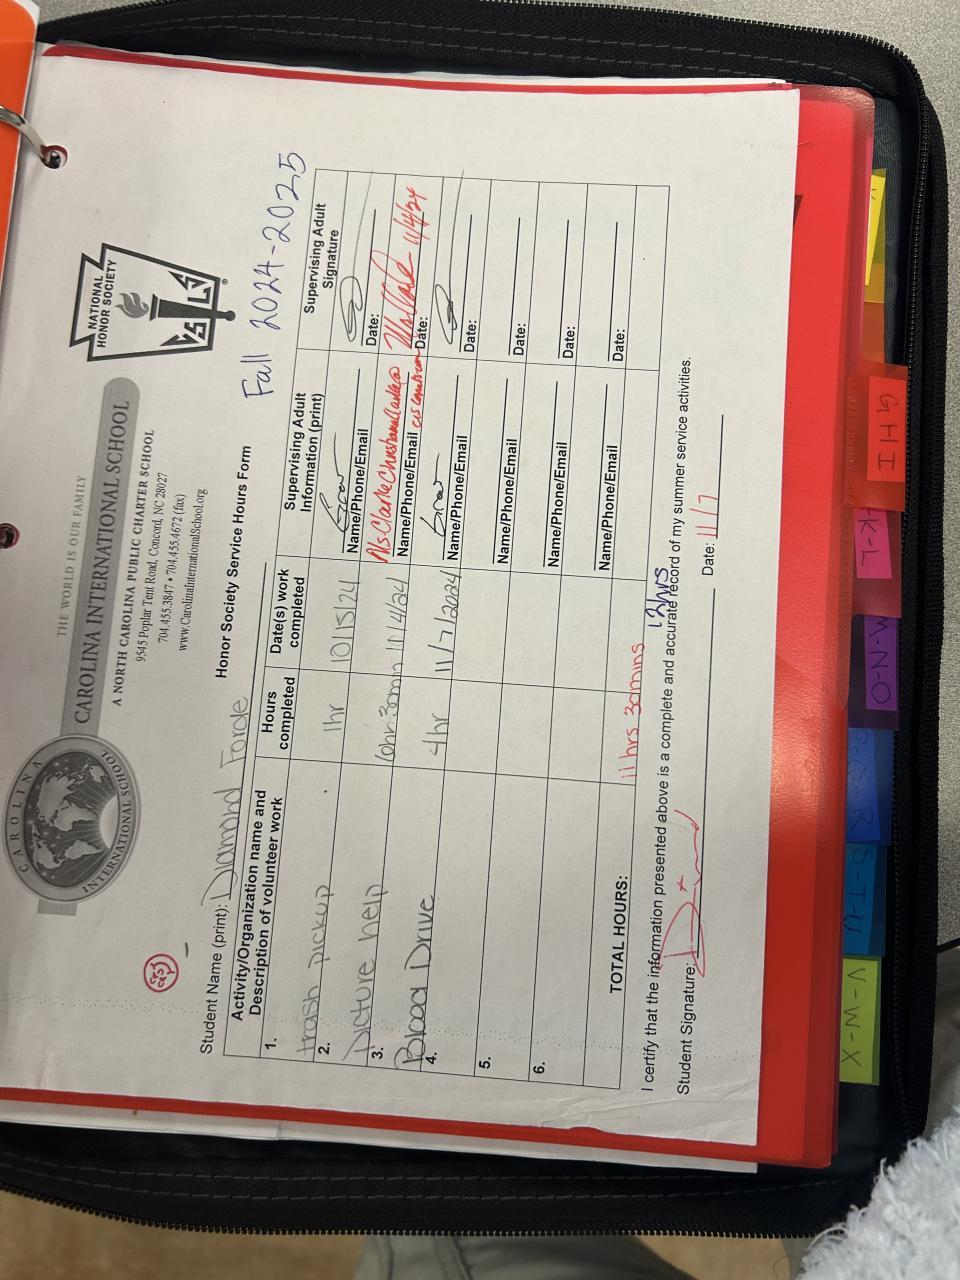 THE WORLD IS OUR FAMILY
CAROLINA INTERNATIONAL SCHOOL
A NORTH CAROLINA PUBLIC CHARTER SCHOOL
9545 Poplar Tent Road, Concord, NC 28027
704.455.3847 • 704.455.4672 (fax)
www.CarolinaInternationalSchool.org
CAROLINA
INTERNATIONAL SCHOOL
NATIONAL
HONOR SOCIETY
Honor Society Service Hours Form
Fall 2024-2025
Student Name (print): Diamond Forde
Activity/Organization name and
Description of volunteer work
Hours
completed
Date(s) work
completed
Supervising Adult
Information (print)
Supervising Adult
Signature
1.
trash pickup
1hr
10/15/24
Name/Phone/Email
Date:
2.
picture help
6hr 30min
11/4/24
Ms. Clarke
Name/Phone/Email
Date: 11/4/24
3.
Blood Drive
4hr
11/7/2024
Name/Phone/Email
Date:
4.
Name/Phone/Email
Date:
5.
Name/Phone/Email
Date:
6.
Name/Phone/Email
Date:
TOTAL HOURS:
11 hrs 30mins
12hrs
I certify that the information presented above is a complete and accurate record of my summer service activities.
Student Signature:
Date: 11/7
G H I
K-L
M-N-O
P-Q-R
S-T-U
V-W-X